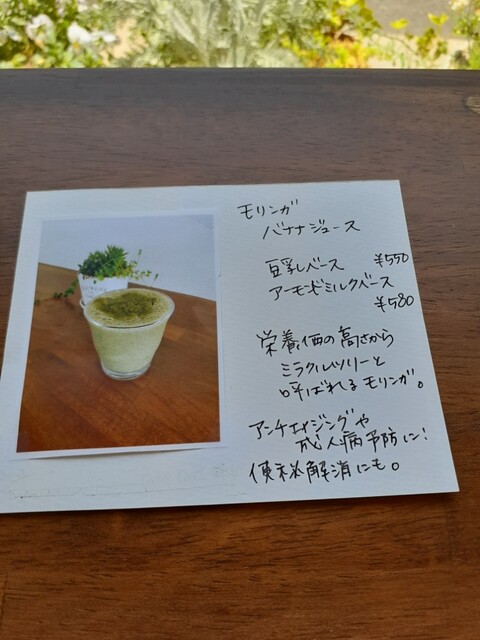 モリンガ
バナナジュース
豆乳ベース ¥550
アーモンドミルクベース
¥580
栄養価の高さから
ミラクルツリーと
呼ばれるモリンガ。
アンチエイジングや
成人病予防に!
便秘解消にも。